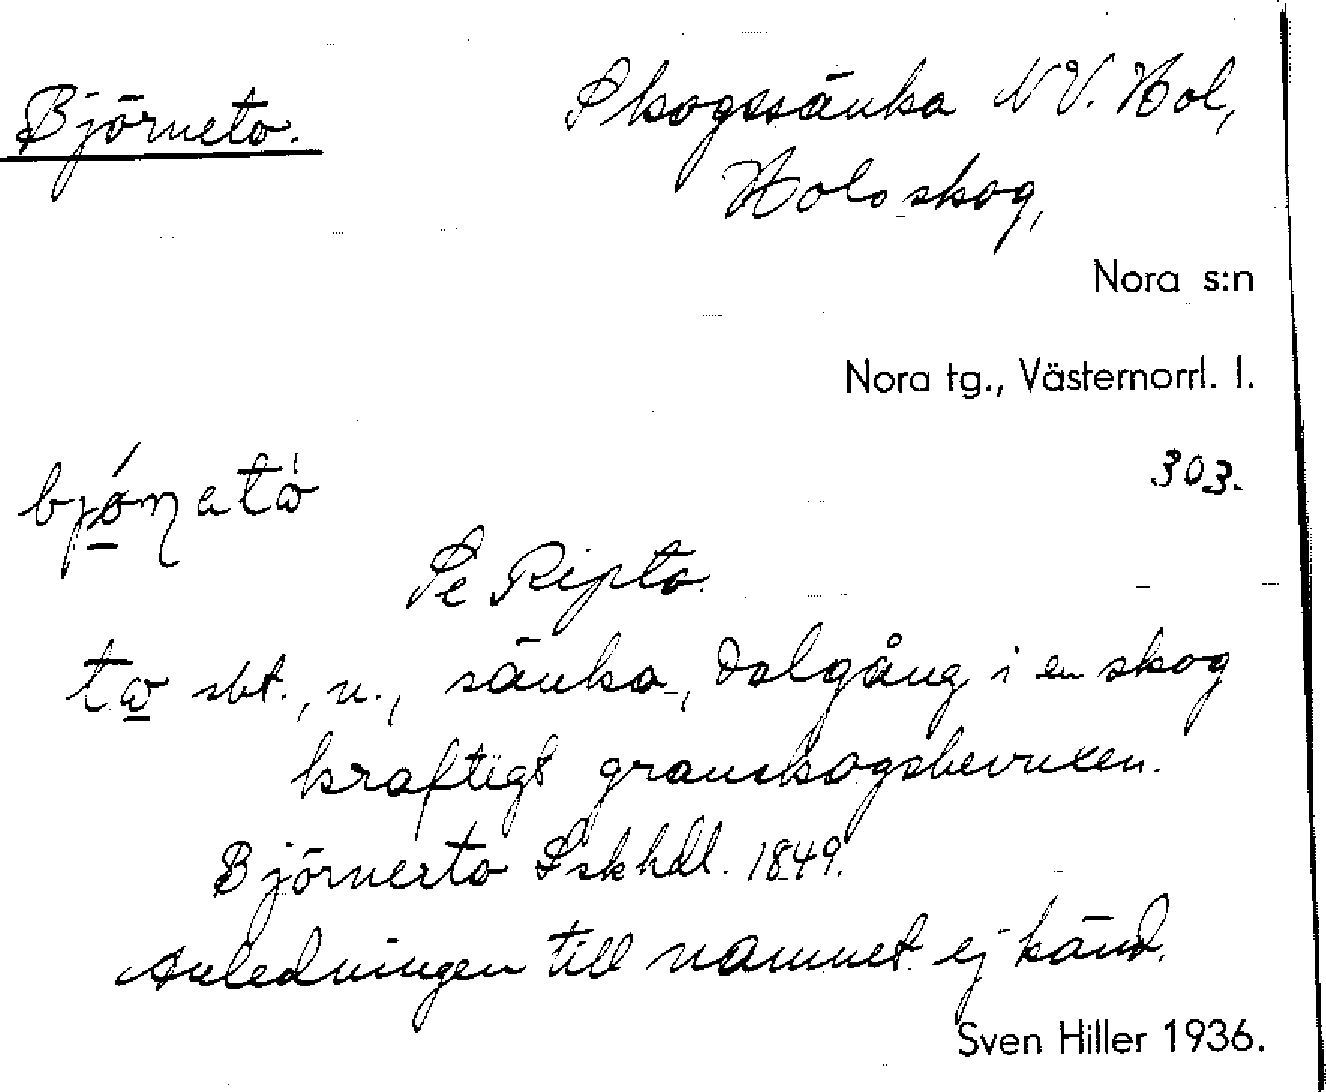 Björneto.
Skogssänka NV. Hol,
Hols skog,
Nora s:n
Nora tg., Västernorrl. l.
303.
Se Ripto.
sbt., n., sänka, dalgång i en skog
kraftigt granskogsbevuxen.
Björnesto Sskhdl. 1849.
Anledningen till namnet ej känd.
Sven Hiller 1936.